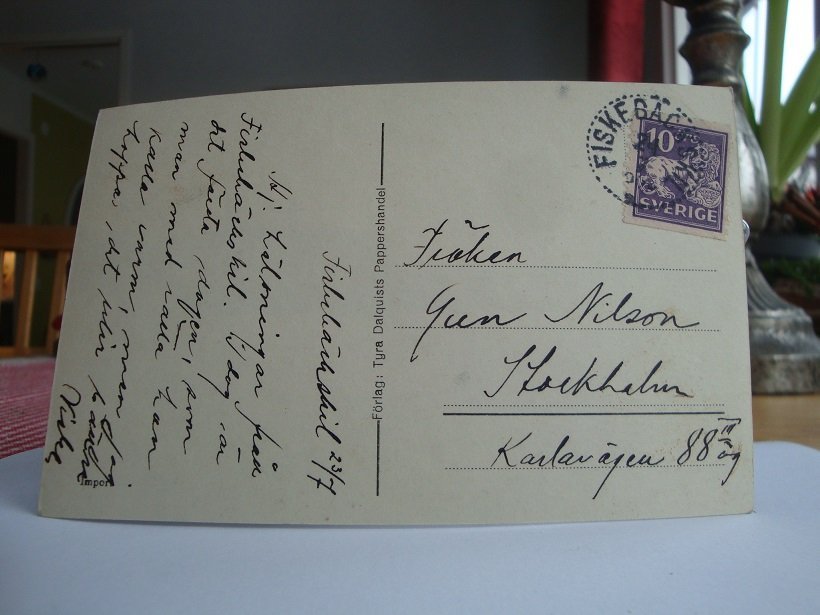 Fiskebäckskil 23/7
Hälsningar från
Fiskebäckskil. I dag är
det första dagen, som
man med
kalla varm, men
hoppas, det blir bättre
Import
Förlag: Tyra Dalquists Pappershandel
FISKEBÄC
10
SVERIGE
Fröken
Gun Nilson
Stockholm
Karlavägen 88 III
ög